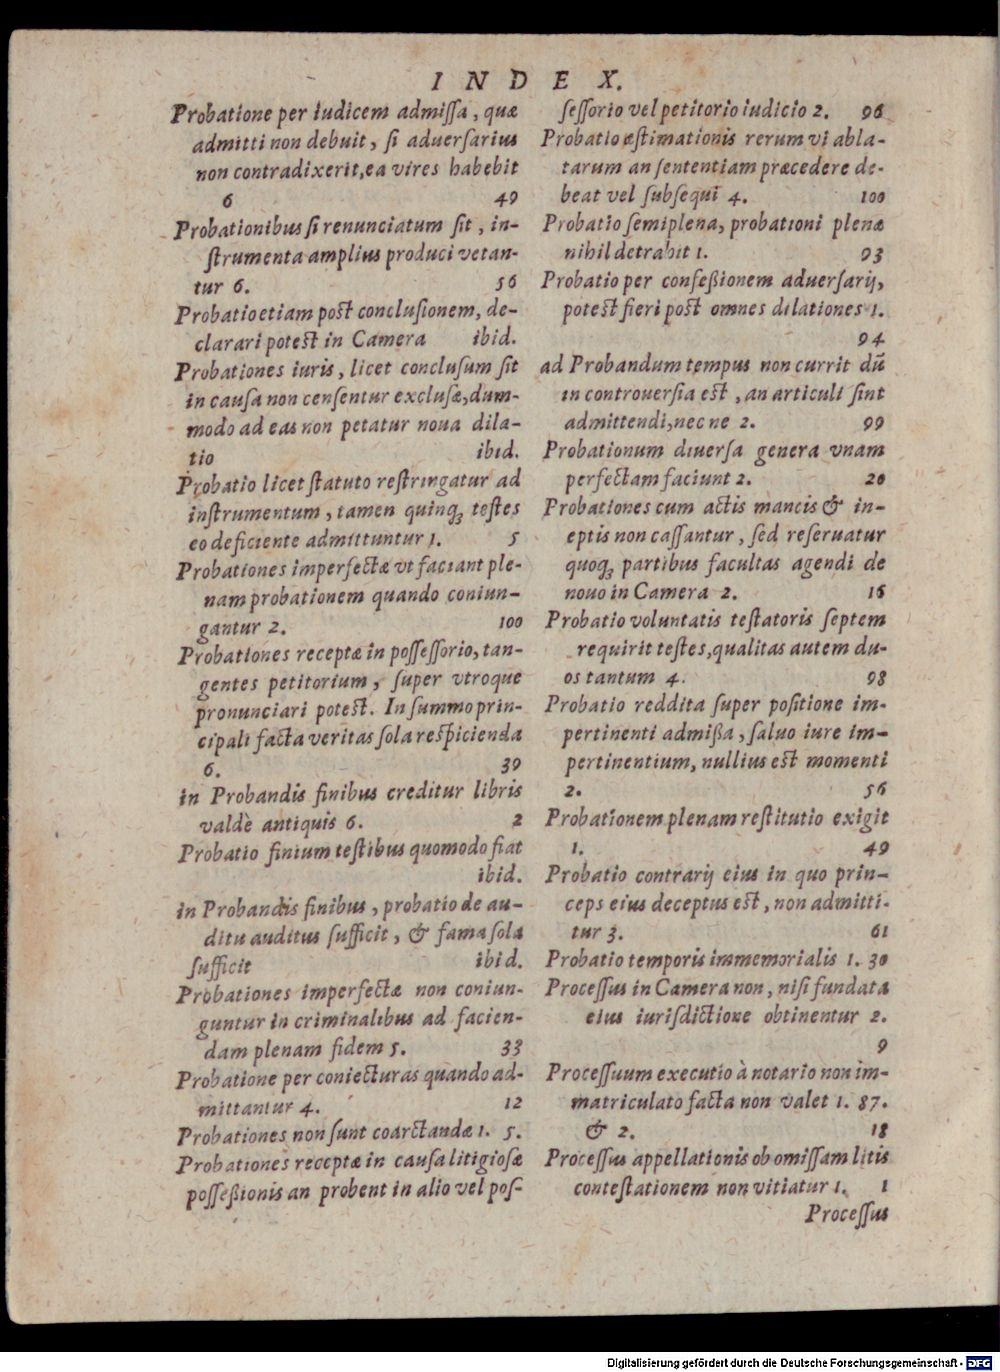 INDEX.
Probatione per iudicem admiſſa, quæ
admitti non debuit, ſi aduerſarius
non contradixerit, ea vires habebit
6 49
Probationibus ſi renunciatum ſit, in-
ſtrumenta amplius produci vetan-
tur 6. 56
Probatio etiam poſt concluſionem, de-
clarari poteſt in Camera ibid.
Probationes iuris, licet concluſum ſit
in cauſa non cenſentur excluſæ, dum-
modo ad eas non petatur noua dila-
tio ibid.
Probatio licet ſtatuto reſtringatur ad
inſtrumentum, tamen quinqꝫ teſtes
eo deficiente admittuntur 1. 5
Probationes imperfectæ vt faciant ple-
nam probationem quando coniun-
gantur 2. 100
Probationes receptæ in poſſeſſorio, tan-
gentes petitorium, ſuper vtroque
pronunciari poteſt. In ſummo prin-
cipali facta veritas ſola reſpicienda
6. 39
in Probandis finibus creditur libris
valdè antiquis 6. 2
Probatio finium teſtibus quomodo fiat
ibid.
in Probandis finibus, probatio de au-
ditu auditus ſufficit, & fama ſola
ſufficit ibid.
Probationes imperfectæ non coniun-
guntur in criminalibus ad facien-
dam plenam fidem 5. 33
Probatione per coniecturas quando ad-
mittantur 4. 12
Probationes non ſunt coarctandæ 1. 5.
Probationes receptæ in cauſa litigioſæ
poſſeßionis an probent in alio vel poſ-
ſeſſorio vel petitorio iudicio 2. 96
Probatio æſtimationis rerum vi abla-
tarum an ſententiam præcedere de-
beat vel ſubſequi 4. 100
Probatio ſemiplena, probationi plenæ
nihil detrahit 1. 93
Probatio per confeßionem aduerſarij,
poteſt fieri poſt omnes dilationes 1.
94
ad Probandum tempus non currit dū
in controuerſia eſt, an articuli ſint
admittendi, nec ne 2. 99
Probationum diuerſa genera vnam
perfectam faciunt 2. 20
Probationes cum actis mancis & in-
eptis non caſſantur, ſed reſeruatur
quoqꝫ partibus facultas agendi de
nouo in Camera 2. 16
Probatio voluntatis teſtatoris ſeptem
requirit teſtes, qualitas autem du-
os tantum 4. 98
Probatio reddita ſuper poſitione im-
pertinenti admißa, ſaluo iure im-
pertinentium, nullius eſt momenti
2. 56
Probationem plenam reſtitutio exigit
1. 49
Probatio contrarij eius in quo prin-
ceps eius deceptus eſt, non admitti-
tur 3. 61
Probatio temporis immemorialis 1. 30
Proceſſus in Camera non, niſi fundata
eius iurisdictione obtinentur 2.
9
Proceſſuum executio à notario non im-
matriculato facta non valet 1. 87.
& 2. 18
Proceſſus appellationis ob omiſſam litis
conteſtationem non vitiatur 1. 1
Proceſſus
Digitalisierung gefördert durch die Deutsche Forschungsgemeinschaft - DFG